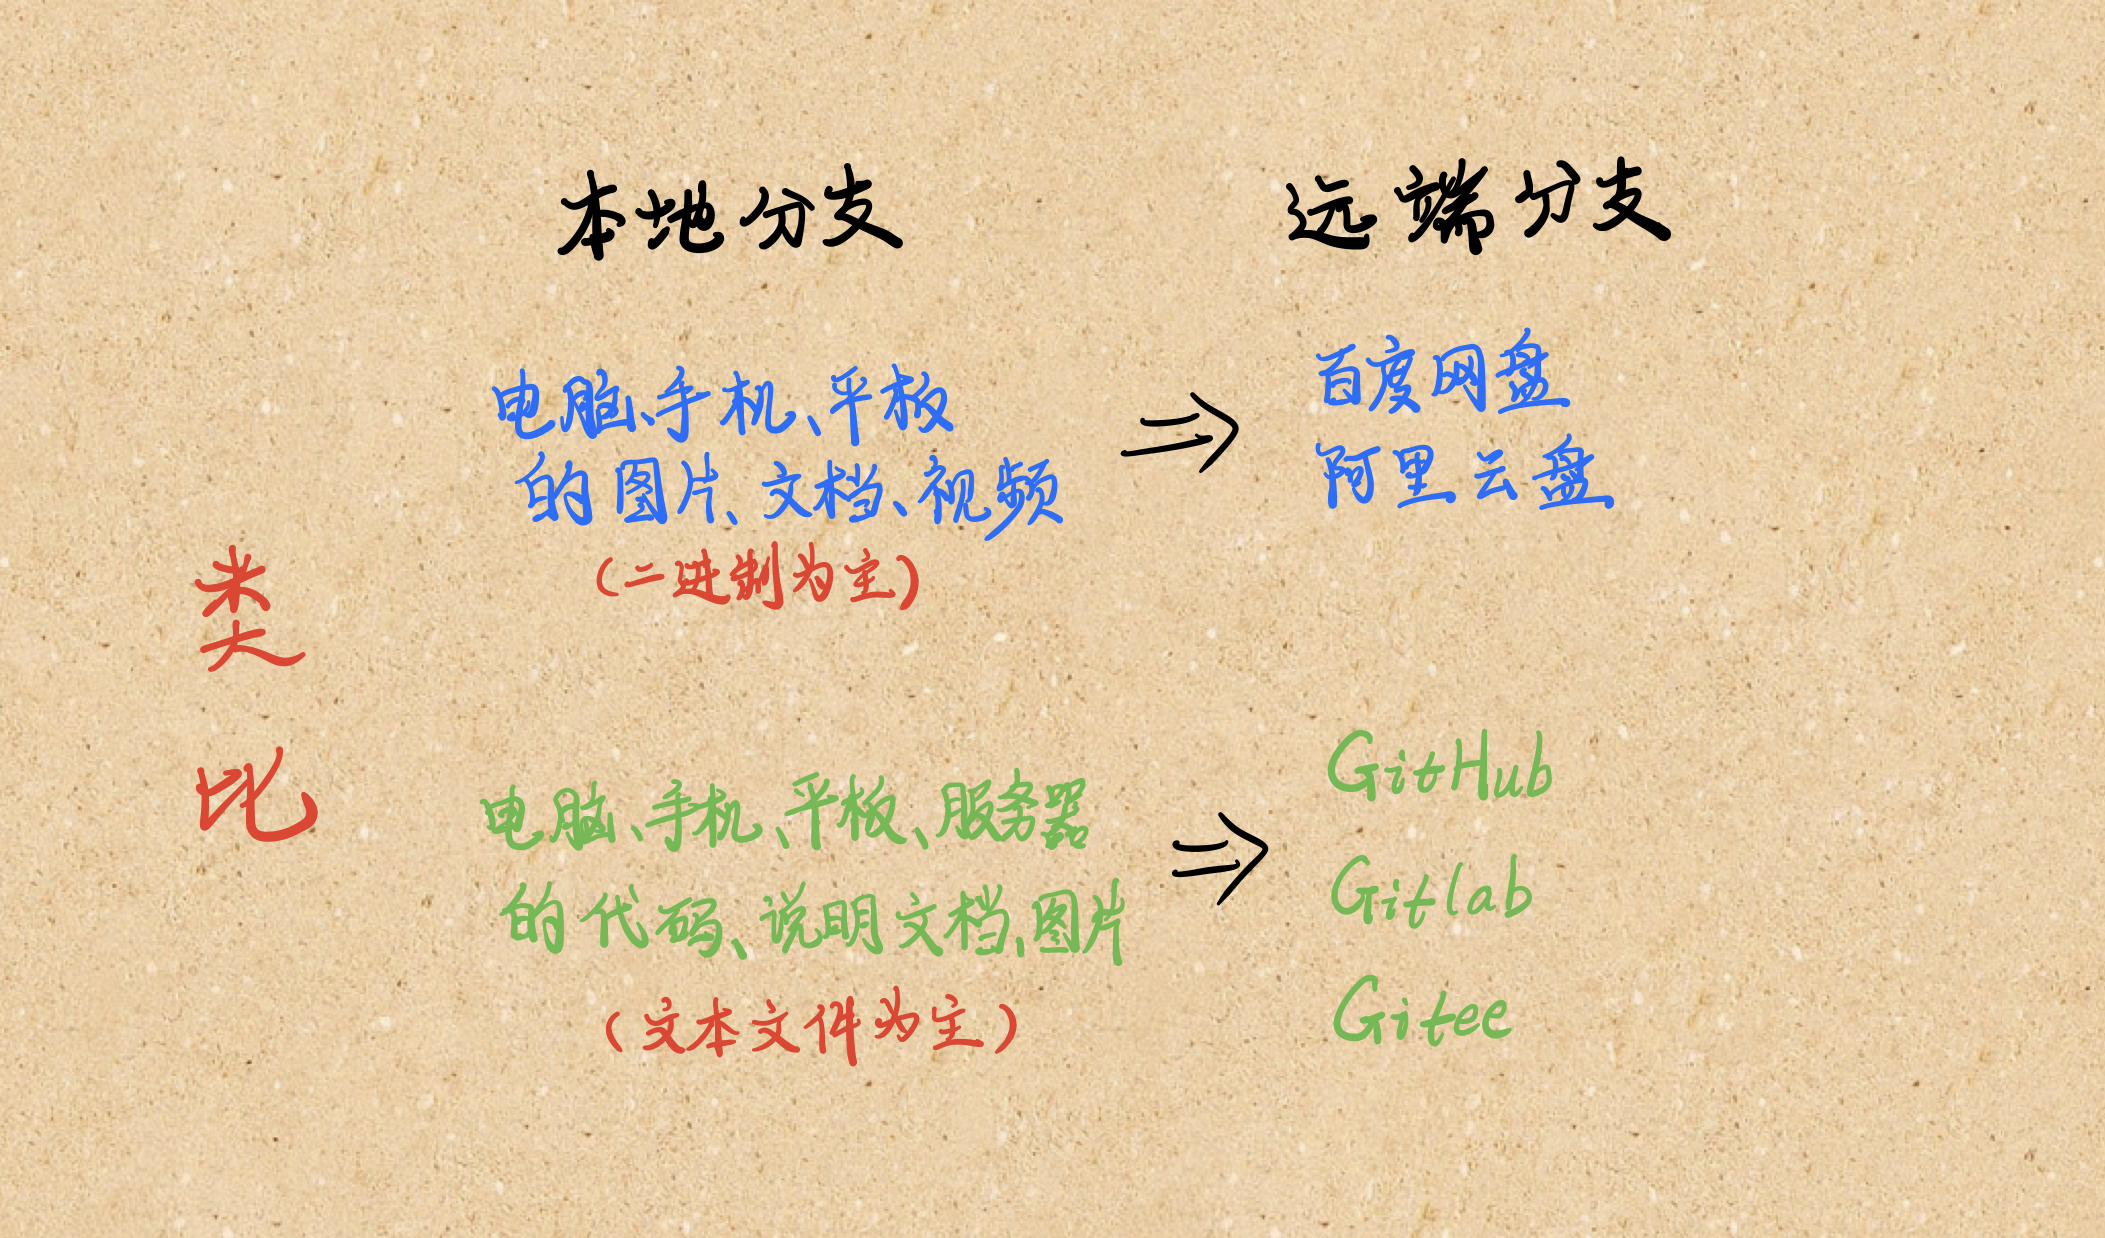 本地分支 远端分支
电脑、手机、平板
的图片、文档、视频
(二进制为主)
百度网盘
阿里云盘
类比
电脑、手机、平板、服务器
的代码、说明文档、图片
(文本文件为主)
GitHub
Gitlab
Gitee